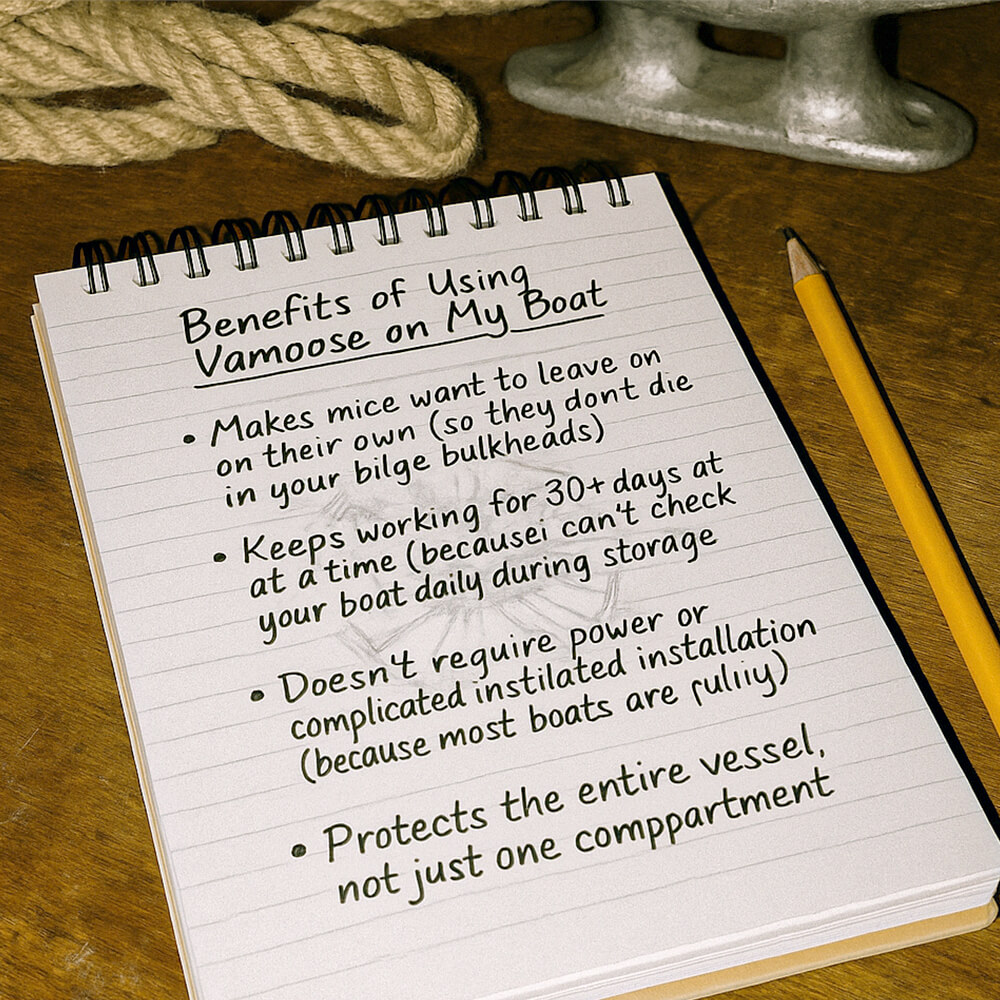 Benefits of Using
Vamoose on My Boat
• Makes mice want to leave on
on their own (so they dont die
in your bilge bulkheads)
• Keeps working for 30+ days at
at a time (becausei can't check
your boat daily during storage
• Doesn't require power or
complicated instilated installation
(because most boats are
• Protects the entire vessel,
not just one comppartment